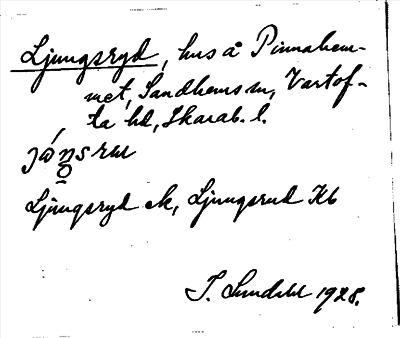 Ljungsryd, hus å Pinnahem-
met, Sandhems sn, Vartof-
ta hd, Skarab. l.
Ljungsryd ek, Ljungsrud Kb
1928.